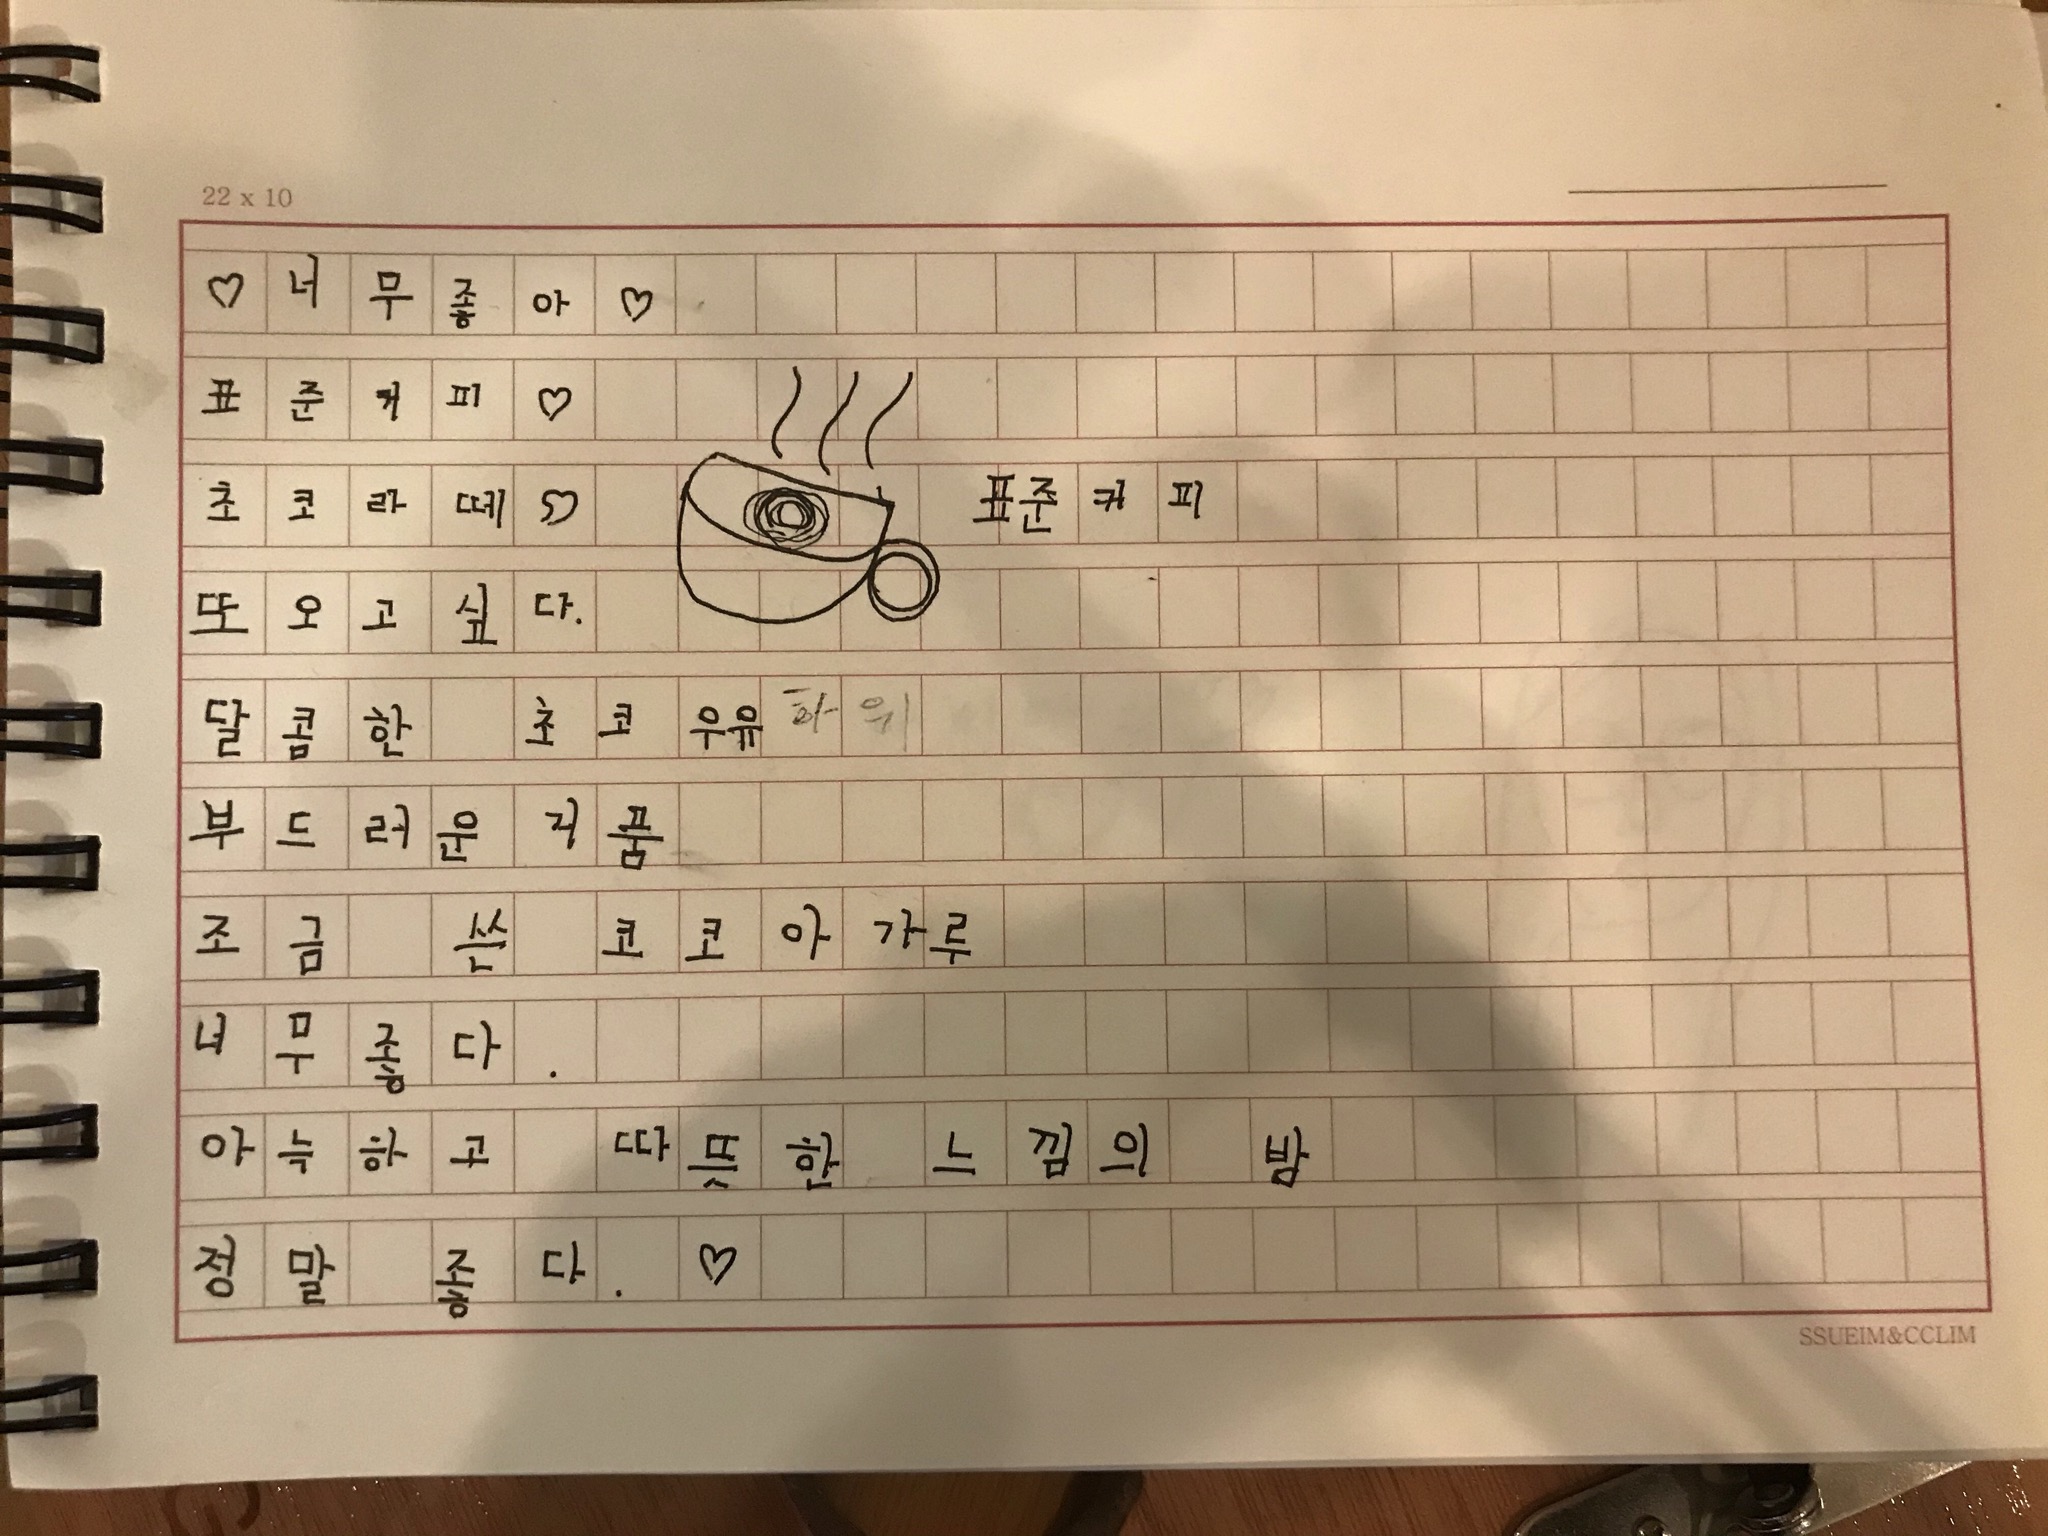 22 x 10
♡너무좋아♡
표준커피♡
초코라떼♡
표준커피
또오고싶다.
달콤한 초코우유
부드러운거품
조금 쓴 코코아가루
너무좋다.
아늑하고 따뜻한 느낌의 밤
정말 좋다. ♡
SSUEIM&CCLIM